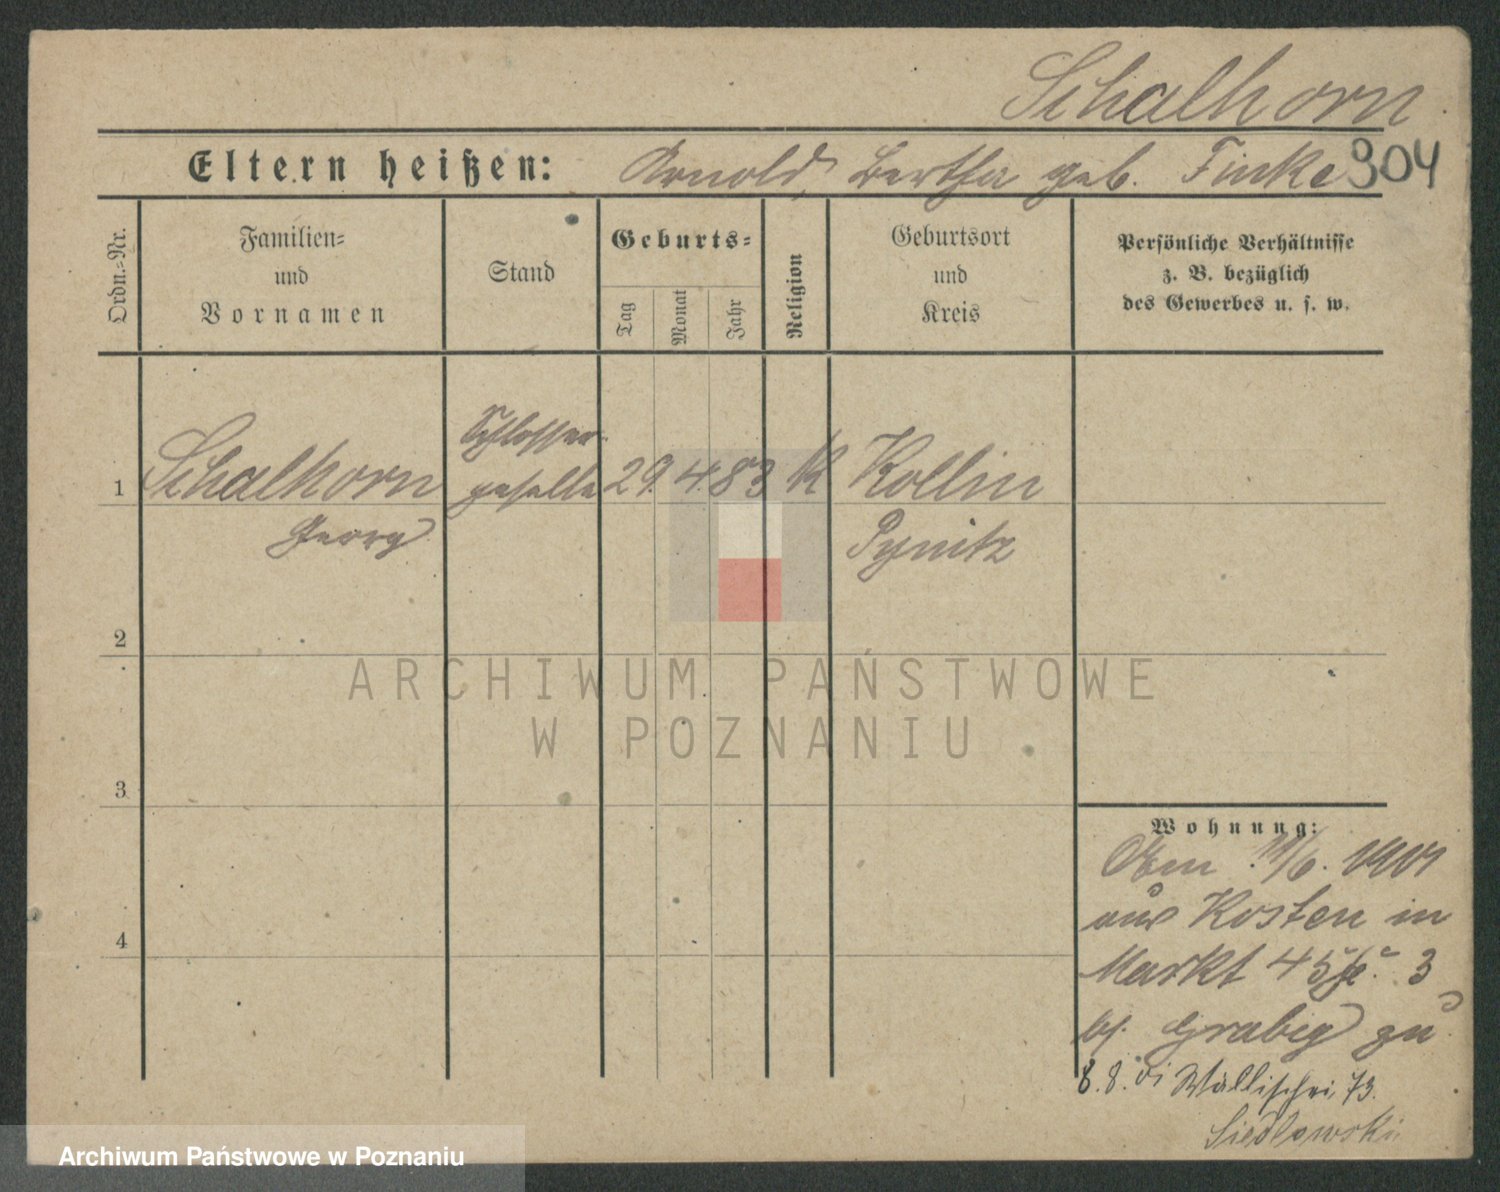 Schalhorn
Eltern heißen: Arnold, Bertha geb. Finke 304
Ordn.-Nr.
Familien-
und
Vornamen
Stand
Geburts-
Tag
Monat
Jahr
Religion
Geburtsort
und
Kreis
Persönliche Verhältnisse
z. B. bezüglich
des Gewerbes u. s. w.
Schlosser-
1 Schalhorn geselle 29. 4. 83 K Kollin
Georg Pyritz
2
ARCHIWUM PAŃSTWOWE
W POZNANIU
3
Wohnung:
/6. 1901
aus Kosten in
Markt 45 3
bj. Grabig zu
8. 8. 01 Wallischei 73.
Siedlowski
4
Archiwum Państwowe w Poznaniu